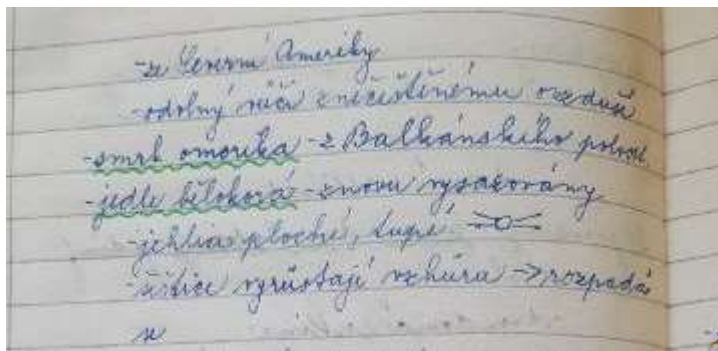 -ze Severní Ameriky
-odolný vůči znečištěnému ovzduší
-smrk omorika - z Balkánského polood.
-jedle bělokorá - znovu vysazovány
-jehlice ploché, tupé
-šištice vyrůstají vzhůru → rozpadá
se